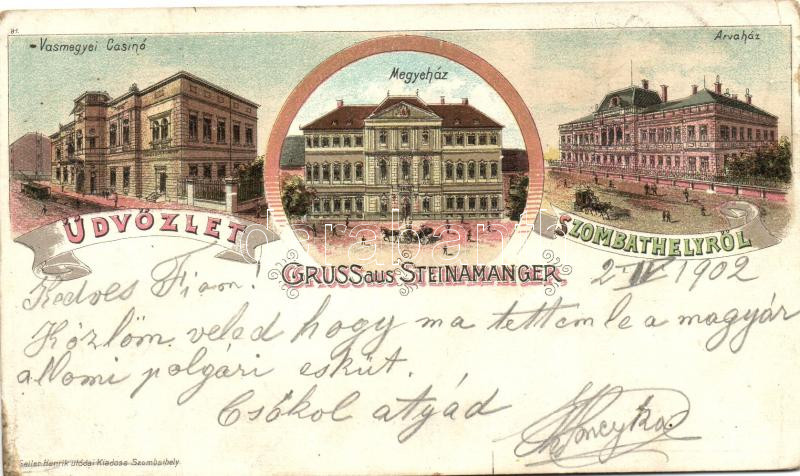 91.
Vasmegyei Casinó
Megyeház
Arvaház
ÜDVÖZLET
SZOMBATHELYRŐL
GRUSS aus STEINAMANGER.
2-IV 1902
Kedves Fiam!
Közlöm veled hogy ma tettem le a magyár
állomi polgári esküt.
Csókol atyád
Seiler Henrik utódai Kiadása Szombathely